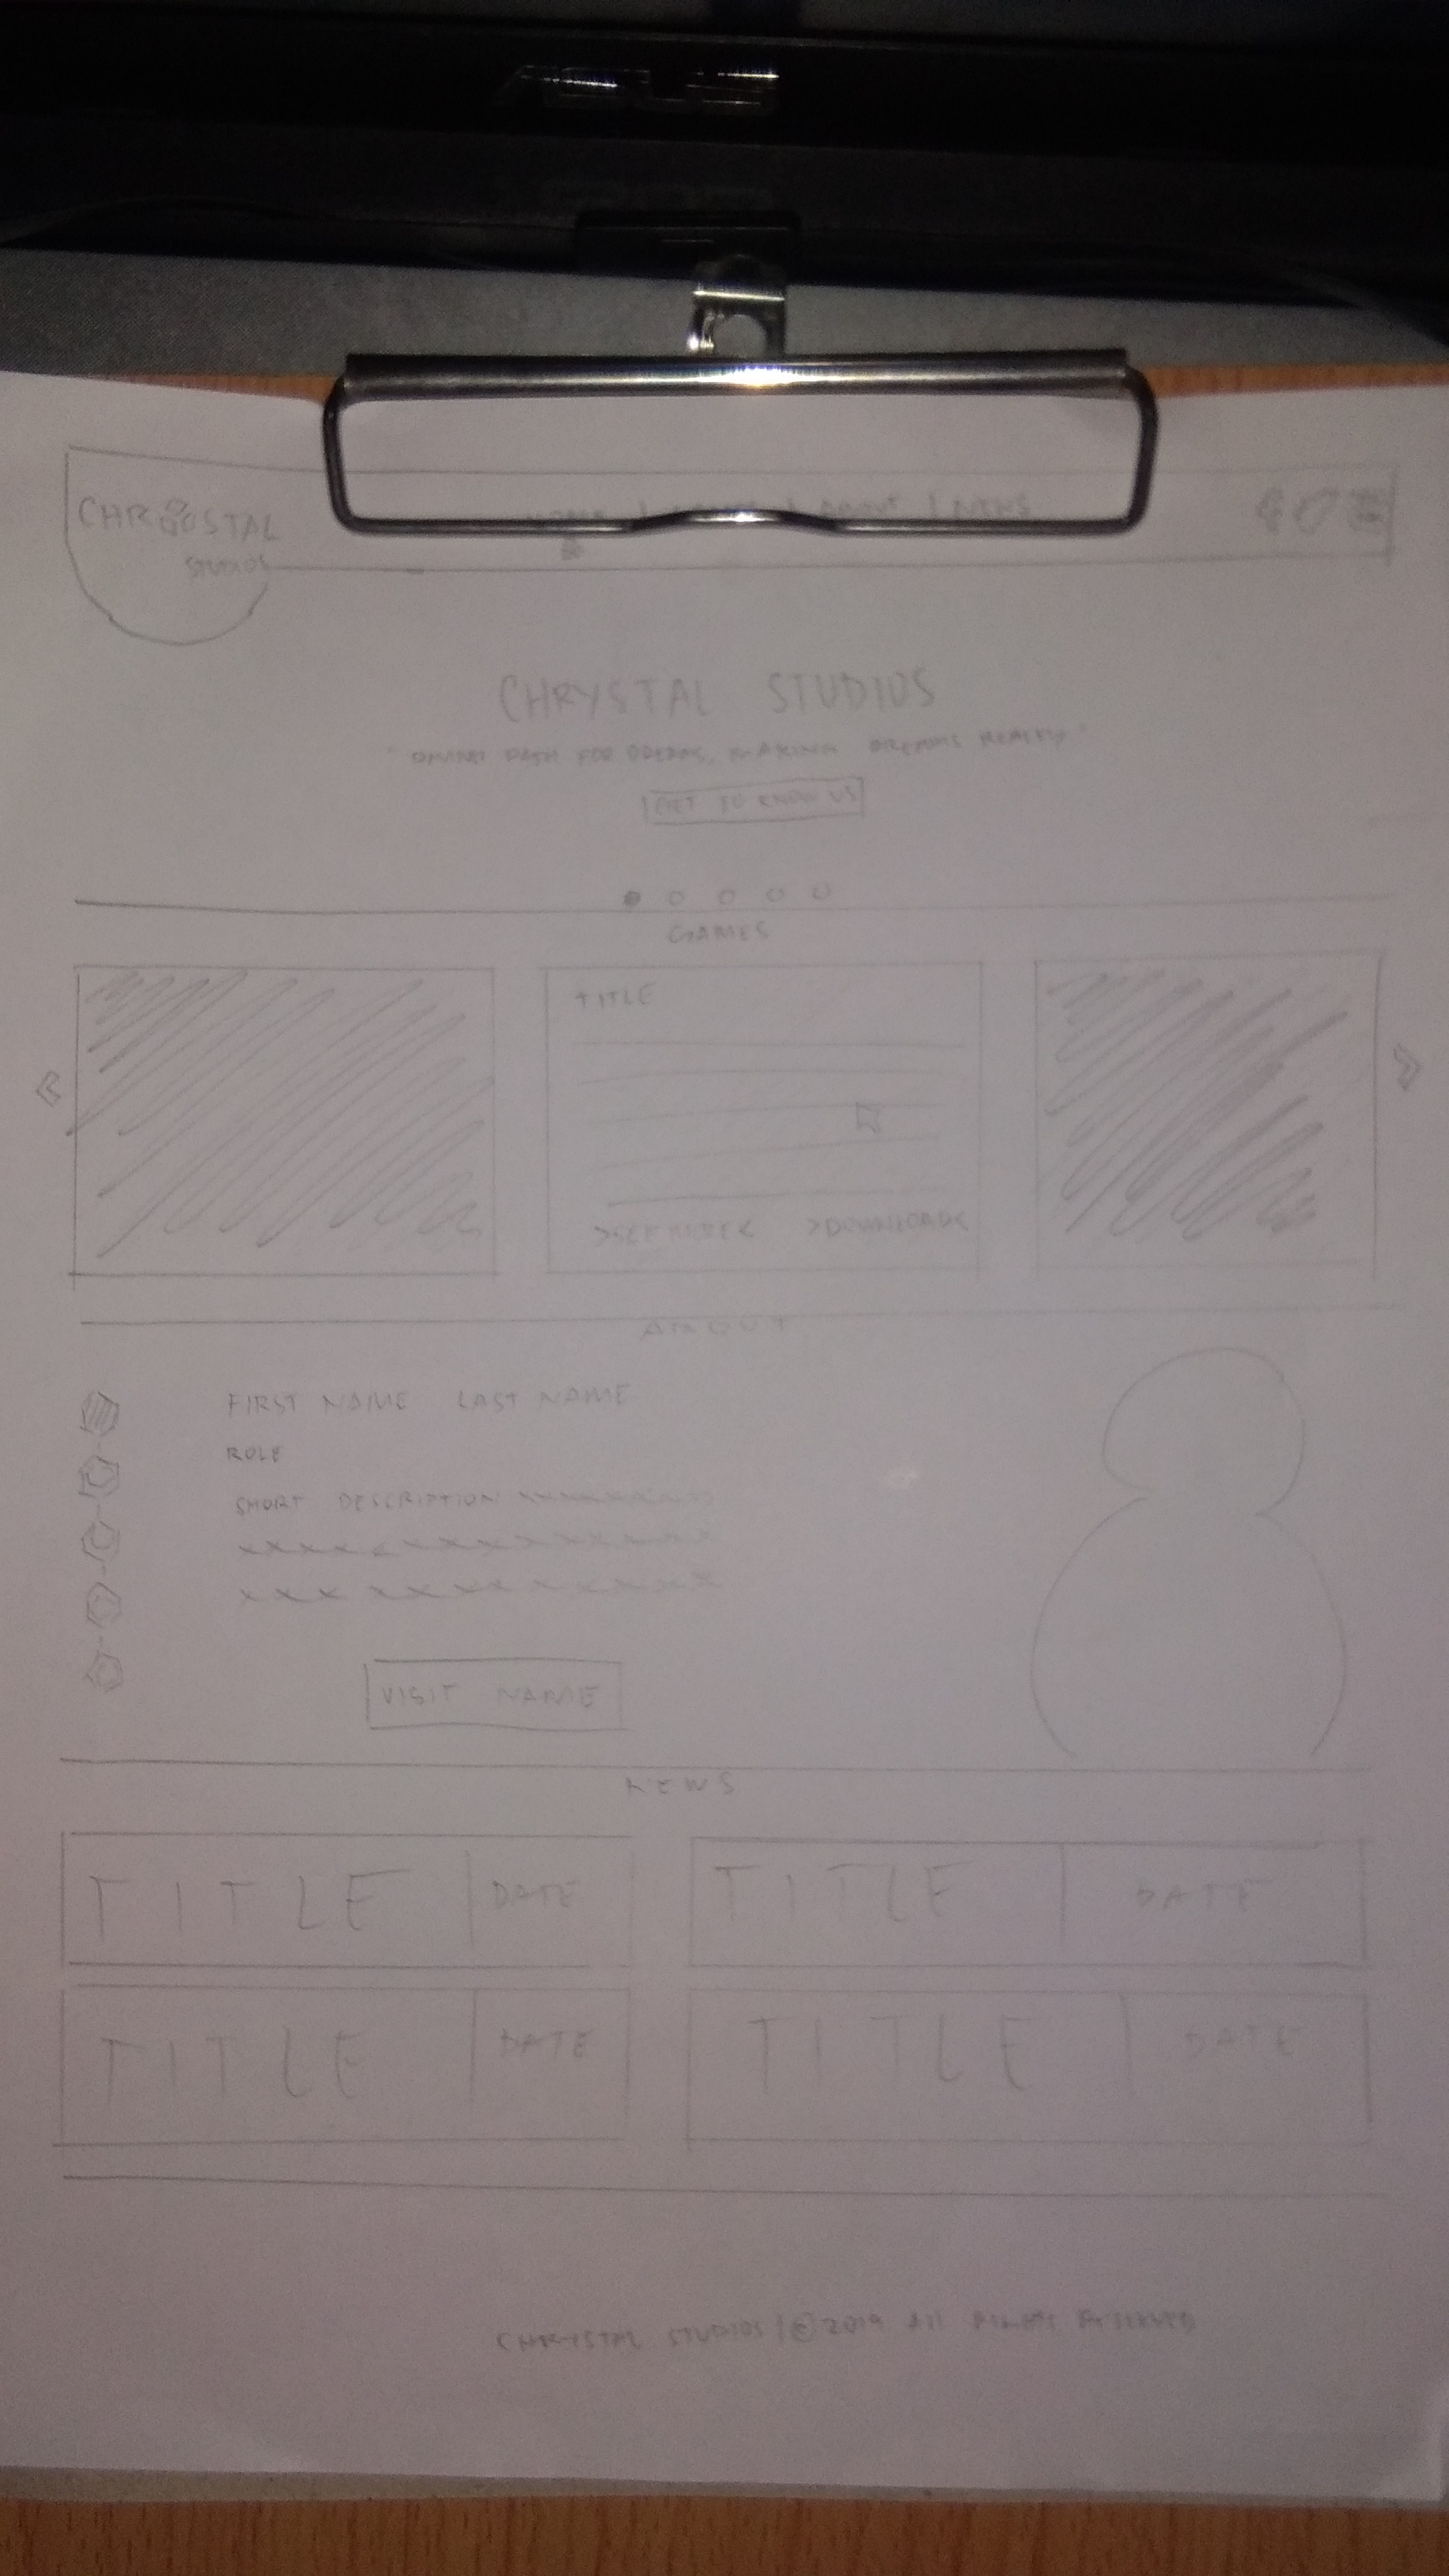 ASUS
CHRYOSTAL
STUDIOS
HOME | | ABOUT | NEWS
CHRYSTAL STUDIOS
PATH FOR DREAMS, MAKING DREAMS REALITY"
GET TO KNOW US
GAMES
TITLE
>SEE MORE< >DOWNLOAD<
ABOUT
FIRST NAME LAST NAME
ROLE
SHORT DESCRIPTION xxxxxxxxx
VISIT NAME
NEWS
TITLE | DATE
TITLE | DATE
TITLE | DATE
TITLE | DATE
CHRYSTAL STUDIOS | © 2019 All RIGHTS RESERVED